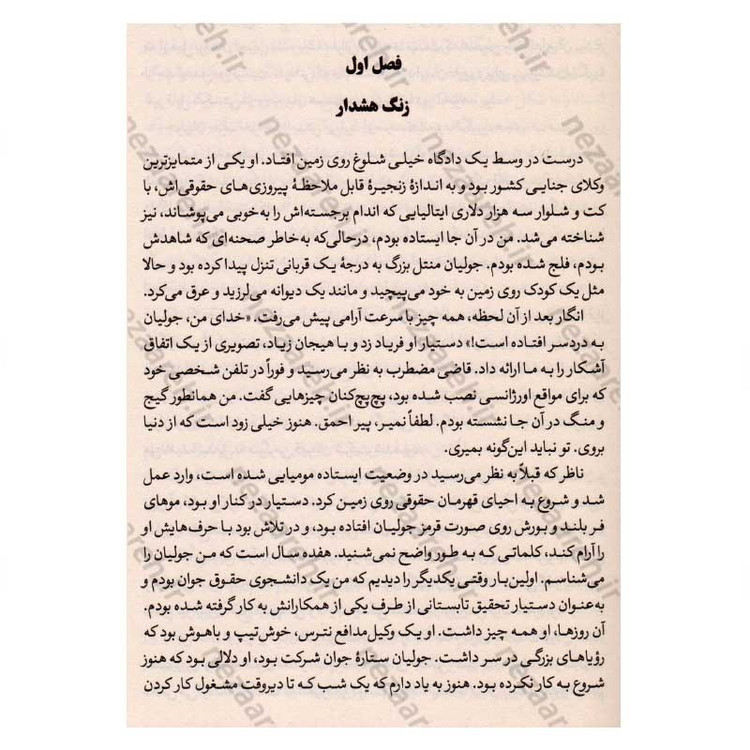 فصل اول
زنگ هشدار
درست در وسط یک دادگاه خیلی شلوغ روی زمین افتاد. او یکی از متمایزترین
وکلای جنایی کشور بود و به اندازهٔ زنجیرهٔ قابل ملاحظهٔ پیروزی‌های حقوقی‌اش، با
کت و شلوار سه هزار دلاری ایتالیایی که اندام برجسته‌اش را به‌خوبی می‌پوشاند، نیز
شناخته می‌شد. من در آن جا ایستاده بودم، درحالی‌که به‌خاطر صحنه‌ای که شاهدش
بودم، فلج شده بودم. جولیان منتل بزرگ به درجهٔ یک قربانی تنزل پیدا کرده بود و حالا
مثل یک کودک روی زمین به خود می‌پیچید و مانند یک دیوانه می‌لرزید و عرق می‌کرد.
انگار بعد از آن لحظه، همه چیز با سرعت آرامی پیش می‌رفت. «خدای من، جولیان
به دردسر افتاده است!» دستیار او فریاد زد و با هیجان زیاد، تصویری از یک اتفاق
آشکار را به ما ارائه داد. قاضی مضطرب به نظر می‌رسید و فوراً در تلفن شخصی خود
که برای مواقع اورژانسی نصب شده بود، پچ‌پچ‌کنان چیزهایی گفت. من همانطور گیج
و منگ در آن جا نشسته بودم. لطفاً نمیر، پیر احمق. هنوز خیلی زود است که از دنیا
بروی. تو نباید این‌گونه بمیری.
ناظر که قبلاً به نظر می‌رسید در وضعیت ایستاده مومیایی شده است، وارد عمل
شد و شروع به احیای قهرمان حقوقی روی زمین کرد. دستیار در کنار او بود، موهای
فر بلند و بورش روی صورت قرمز جولیان افتاده بود، و در تلاش بود با حرف‌هایش او
را آرام کند، کلماتی که به طور واضح نمی‌شنید. هفده سال است که من جولیان را
می‌شناسم. اولین‌بار وقتی یکدیگر را دیدیم که من یک دانشجوی حقوق جوان بودم و
به‌عنوان دستیار تحقیق تابستانی از طرف یکی از همکارانش به کار گرفته شده بودم.
آن روزها، او همه چیز داشت. او یک وکیل‌مدافع نترس، خوش‌تیپ و باهوش بود که
رؤیاهای بزرگی در سر داشت. جولیان ستارهٔ جوان شرکت بود، او دلالی بود که هنوز
شروع به کار نکرده بود. هنوز به یاد دارم که یک شب که تا دیروقت مشغول کار کردن
nezaareh.ir